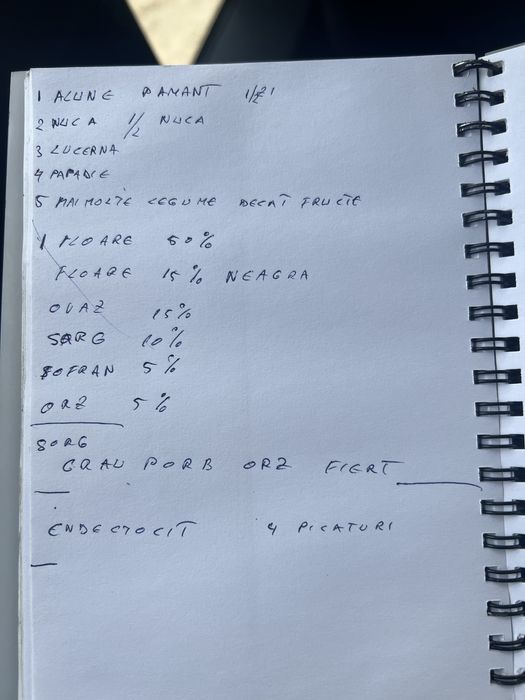 1 ALUNE PAMANT 1/2
2 NUCA 1/2 NUCA
3 LUCERNA
4 PAPADIE
5 MAI MOLTE LEGUME DECAT FRUCTE
1 FLOARE 50%
FLOARE 15% NEAGRA
OVAZ 15%
SORG 10%
SOFRAN 5%
ORZ 5%
SORG
GRAU PORB ORZ FIERT
ENDECTOCIT 4 PICATURI